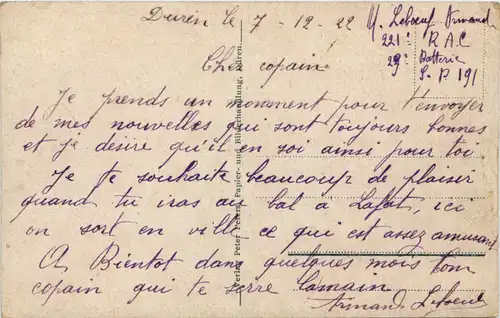 Duren le 7-12-22
M. Leboeuf Armand
221e R A C
29e Batterie
S. P 191
Cher copain
Je prends un momment pour t'envoyer
de mes nouvelles qui sont toujours bonnes
et je désire qu'il en soi ainsi pour toi
Je te souhaite beaucoup de plaisir
quand tu iras au bal à Lafat, ici
on sort en ville ce qui est assez amusant
A Bientot dans quelques mois ton
copain qui te serre lamain
Armand Leboeuf
Verlag Peter Papier- und Düren.